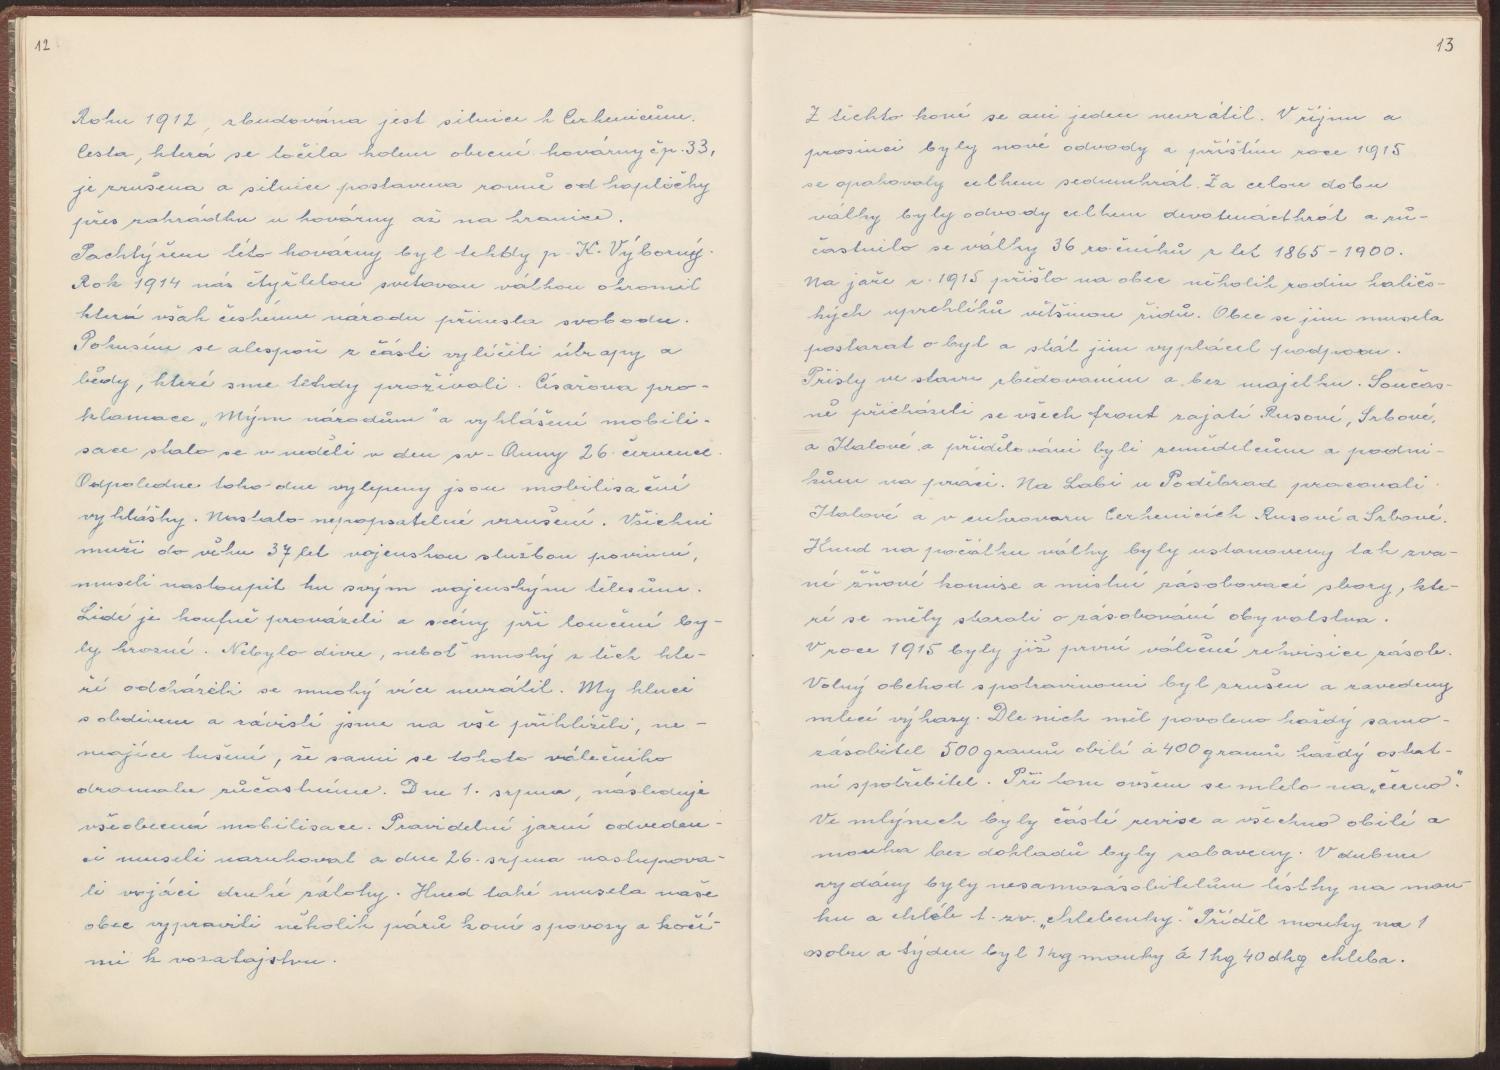 12
Roku 1912, zbudována jest silnice k Cerhenicům.
Cesta, která se točila kolem obecní kovárny čp. 33,
je zrušena a silnice postavena rovně od kapličky
přes zahrádku u kovárny až na hranice.
Pachtýřem této kovárny byl tehdy p. K. Výborný.
Rok 1914 nás čtyřletou světovou válkou ohromil
která však českému národu přinesla svobodu.
Pokusím se alespoň z části vylíčiti útrapy a
bědy, které sme tehdy prožívali. Císařova pro-
klamace „Mým národům" a vyhlášení mobili-
sace stalo se v neděli v den sv. Anny 26. července.
Odpoledne toho dne vylepeny jsou mobilisační
vyhlášky. Nastalo nepopsatelné vzrušení. Všichni
muži do věku 37 let vojenskou službou povinní,
museli nastoupit ku svým vojenským tělesům.
Lidé je houfně provázeli a scény při loučení by-
ly hrozné. Nebylo divu, neboť mnohý z těch kte-
ří odcházeli se mnohý více nevrátil. My kluci
s obdivem a závistí jsme na vše přihlíželi, ne-
majíce tušení, že sami se tohoto válečného
dramatu zůčastníme. Dne 1. srpna, následuje
všeobecná mobilisace. Pravidelní jarní odveden-
ci museli narukovat a dne 26. srpna nastupova-
li vojáci druhé zálohy. Hned také musela naše
obec vypraviti několik párů koní s povozy a kočí-
mi k vozatajstvu.
13
Z těchto koní se ani jeden nevrátil. V říjnu a
prosinci byly nové odvody a příštím roce 1915
se opakovaly celkem sedumkrát. Za celou dobu
války byly odvody celkem devatenáctkrát a zů-
častnilo se války 36 ročníků z let 1865-1900.
Na jaře r. 1915 přišlo na obec několik rodin halič-
kých uprchlíků většinou židů. Obec se jim musela
postarat o byt a stát jim vyplácel podporu.
Přišly ve stavu zbědovaném a bez majetku. Součas-
ně přicházeli se všech front zajatí Rusové, Srbové,
a Italové a přidělováni byli zemědělcům a podni-
kům na práci. Na Labi u Poděbrad pracovali
Italové a v cukrovaru Cerhenicích Rusové a Srbové.
Hned na počátku války byly ustanoveny tak zva-
né žňové komise a místní zásobovací sbory, kte-
ré se měly starati o zásobování obyvatelstva.
V roce 1915 byly již první válečné rekvisice zásob.
Volný obchod s potravinami byl zrušen a zavedeny
mlecí výkazy. Dle nich měl povoleno každý samo-
zásobitel 500 gramů obilí á 400 gramů každý ostat-
ní spotřebitel. Při tom ovšem se mlelo na „černo".
Ve mlýnech byly časté revise a všechno obilí a
mouka bez dokladů byly zabaveny. V dubnu
vydány byly nesamozásobitelům lístky na mou-
ku a chléb t. zv. „chlebenky." Příděl mouky na 1
osobu a týden byl 1 kg mouky á 1 kg 40 dkg chleba.